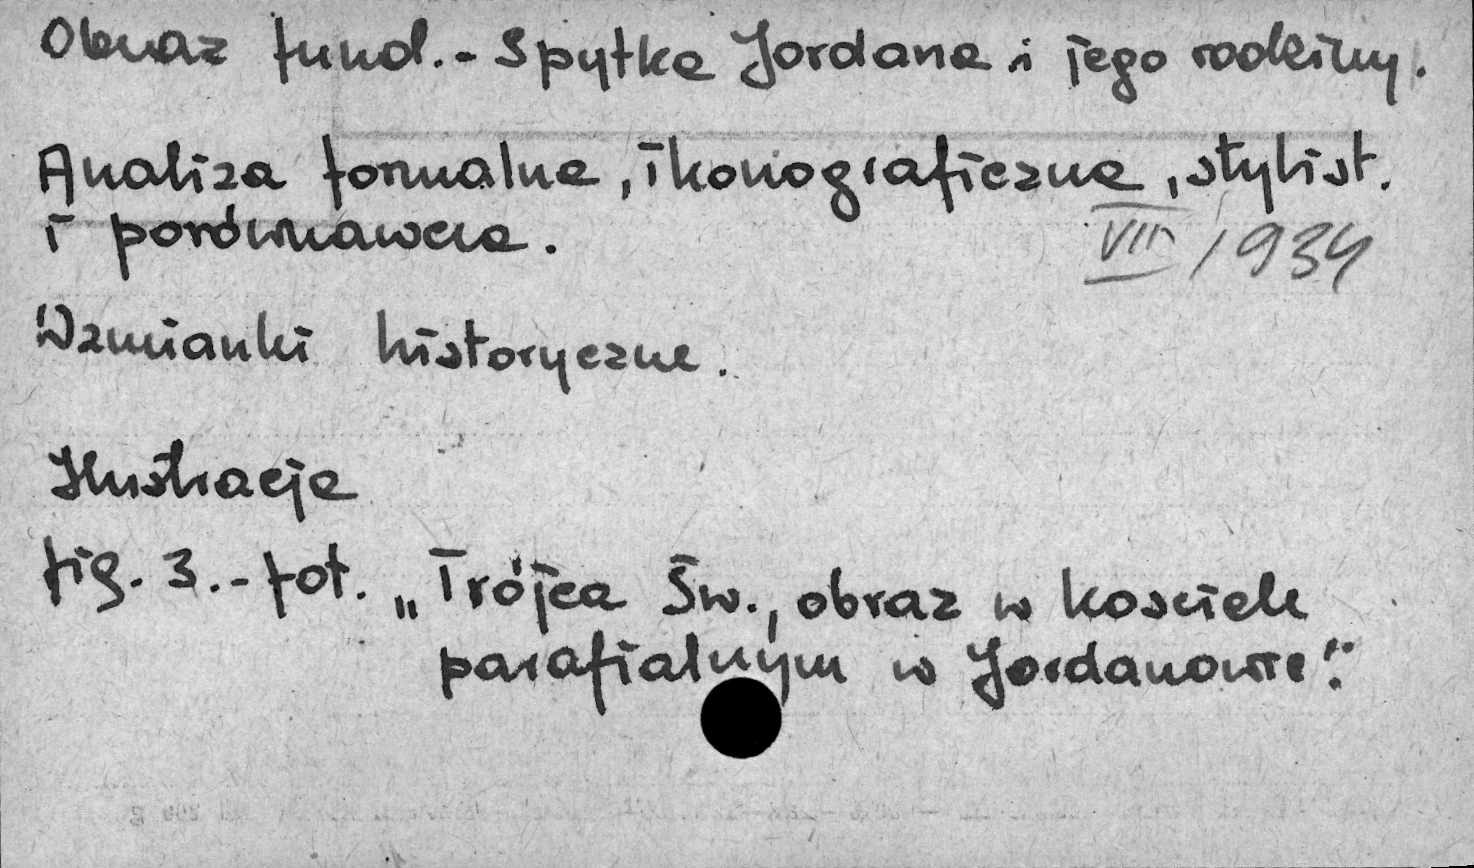 Obraz fund. - Spytka Jordana i jego rodziny.
Analiza formalna, ikonograficzna, stylist.
i porównawcza.
VIII/1934
Wzmianki historyczne.
Ilustracje
fig. 3. - fot. „Trójca Św., obraz w kosciele
parafialnym w Jordanowie".